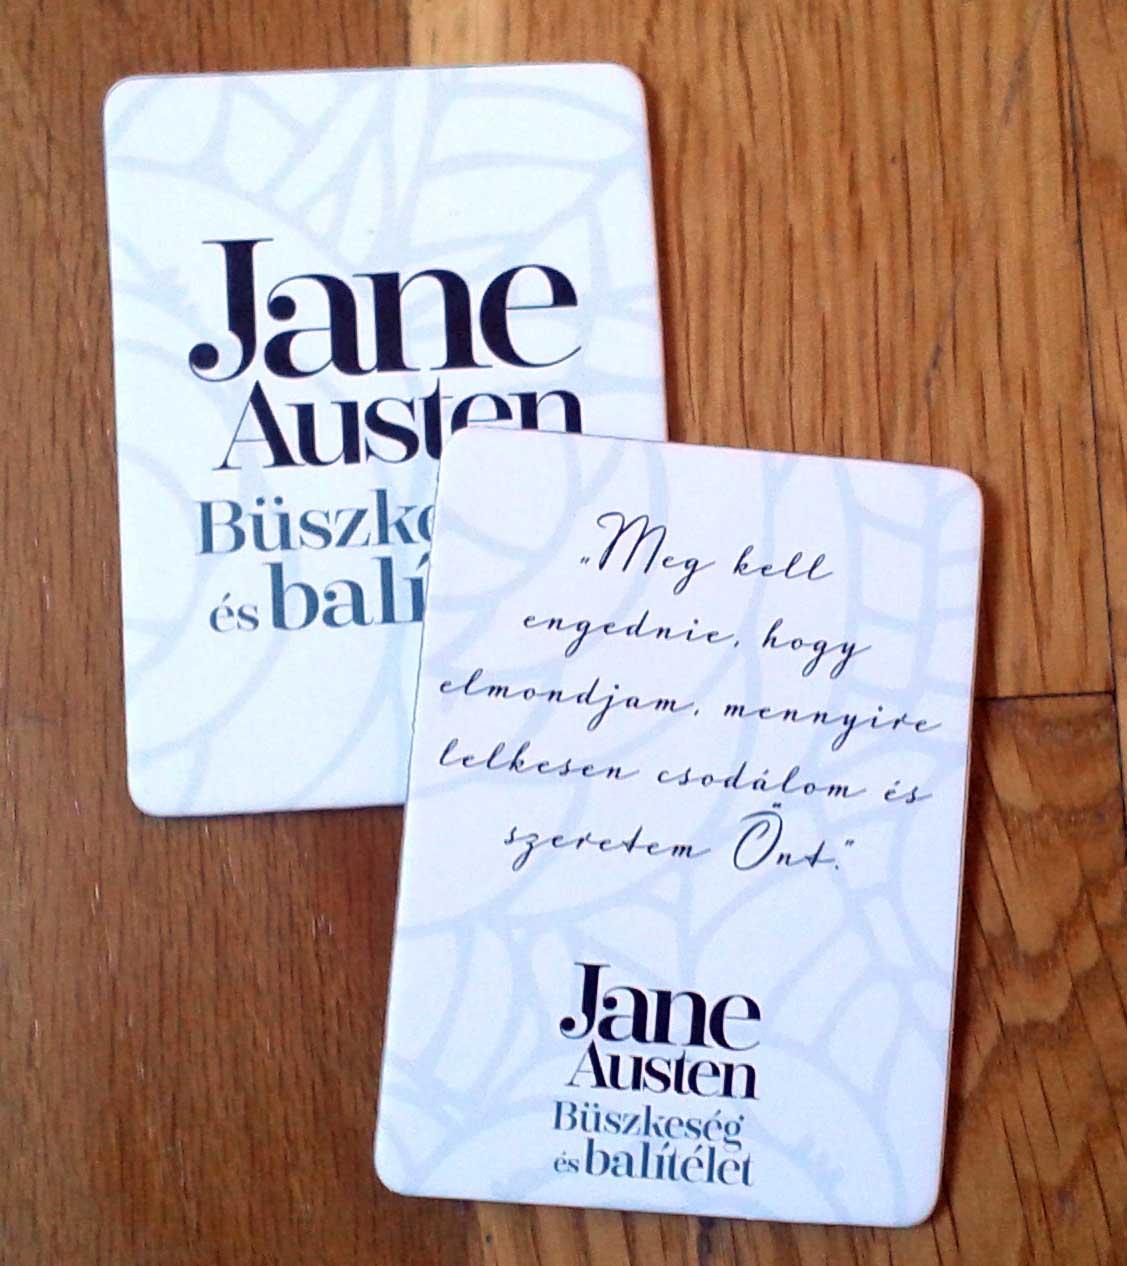 Jane
Austen
és
„Meg kell
engednie, hogy
elmondjam, mennyire
lelkesen csodálom és
szeretem Önt.”
Jane
Austen
Büszkeség
és balítélet